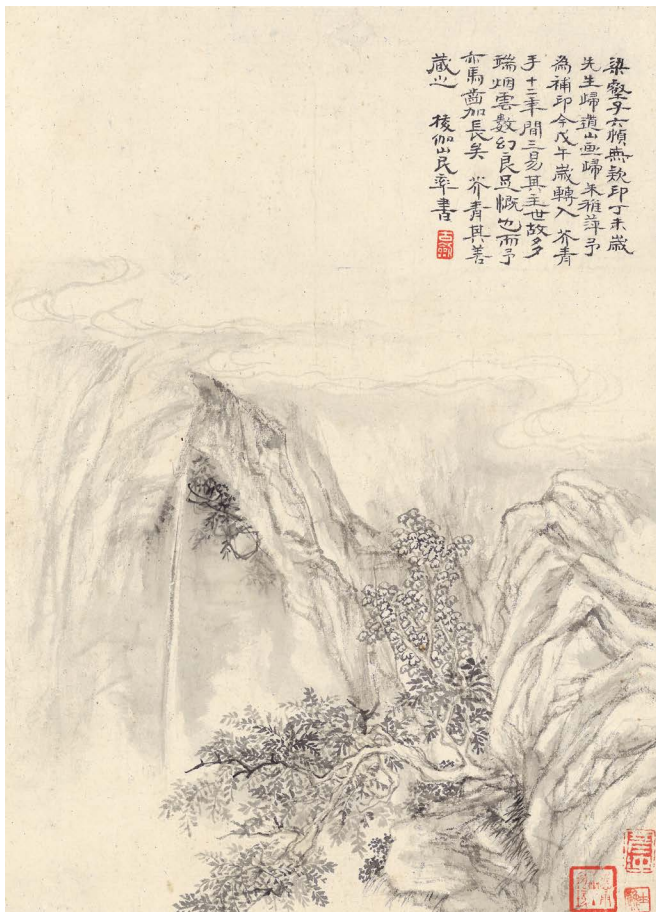 梁壑子六幀無款印丁未歲
先生歸道山画歸朱雅萍予
為補印今戊午歲轉入 芥青
手十二年間三易其主世故多
端烟雲數幻良足慨也而予
亦馬齒加長矣 芥青其善
藏之 稜伽山民率書